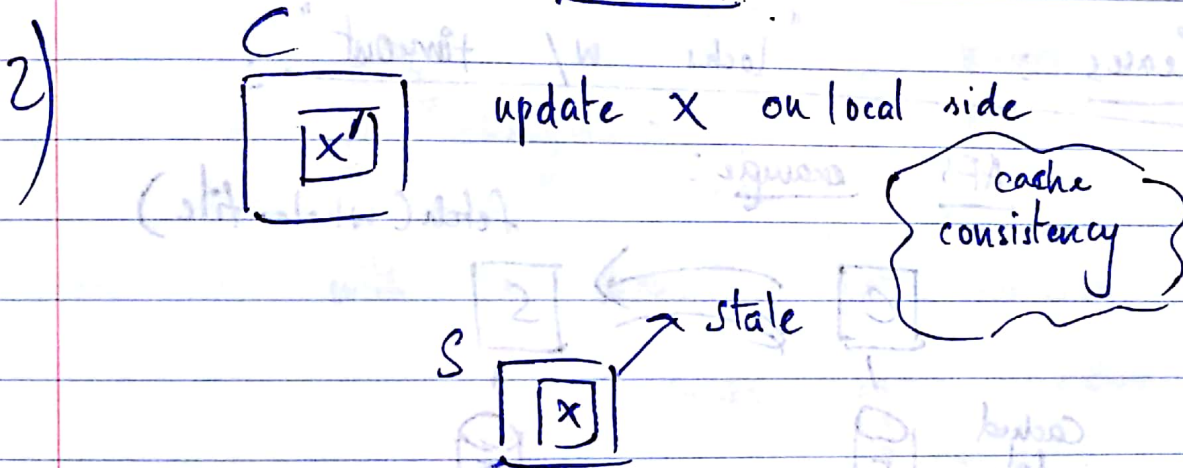 2)
C
X'
update X on local side
cache
consistency
stale
S
X